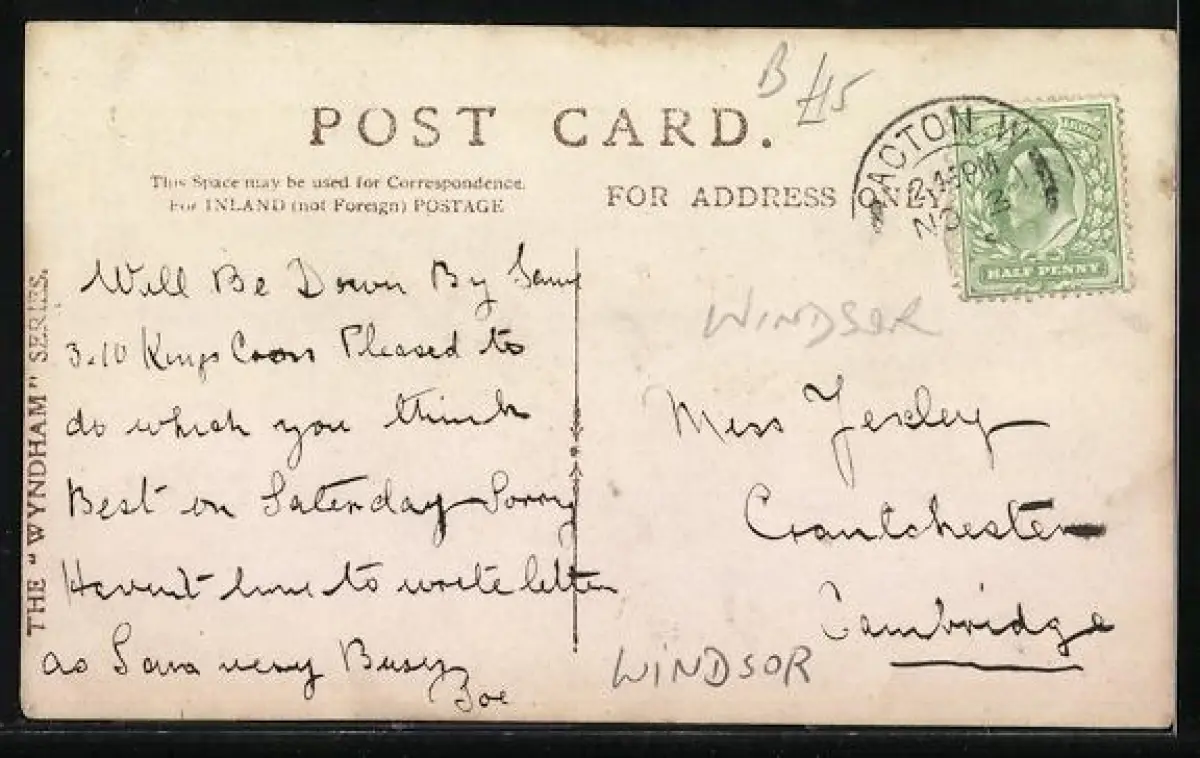 B £15
POST CARD.
This Space may be used for Correspondence.
For INLAND (not Foreign) POSTAGE
FOR ADDRESS ONLY
ACTON W
2.45 PM
NO 3
HALF PENNY
THE "WYNDHAM" SERIES.
Will Be Down By Same
3.10 Kings Cross Pleased to
do which you think
Best on Saterday Sorry
Havent time to write letter
as I am very Busy
Joe
WINDSOR
Miss
Crantchester
Cambridge
WINDSOR